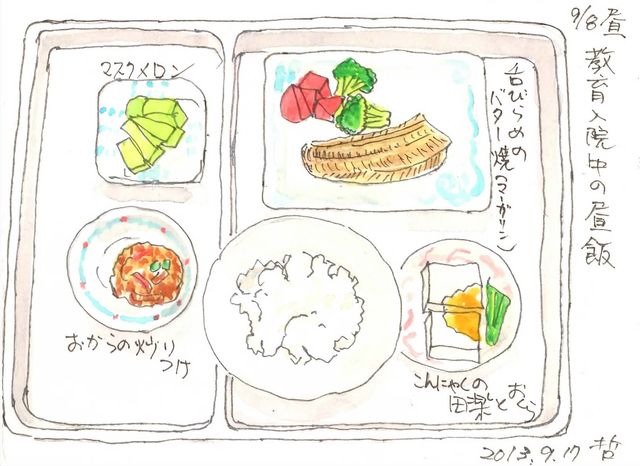 9/8昼
教育入院中の昼飯
マスクメロン
舌びらめの
バター焼(マーガリン)
おからの炒り
つけ
こんにゃくの
田楽とおくら
2013.9.17 哲